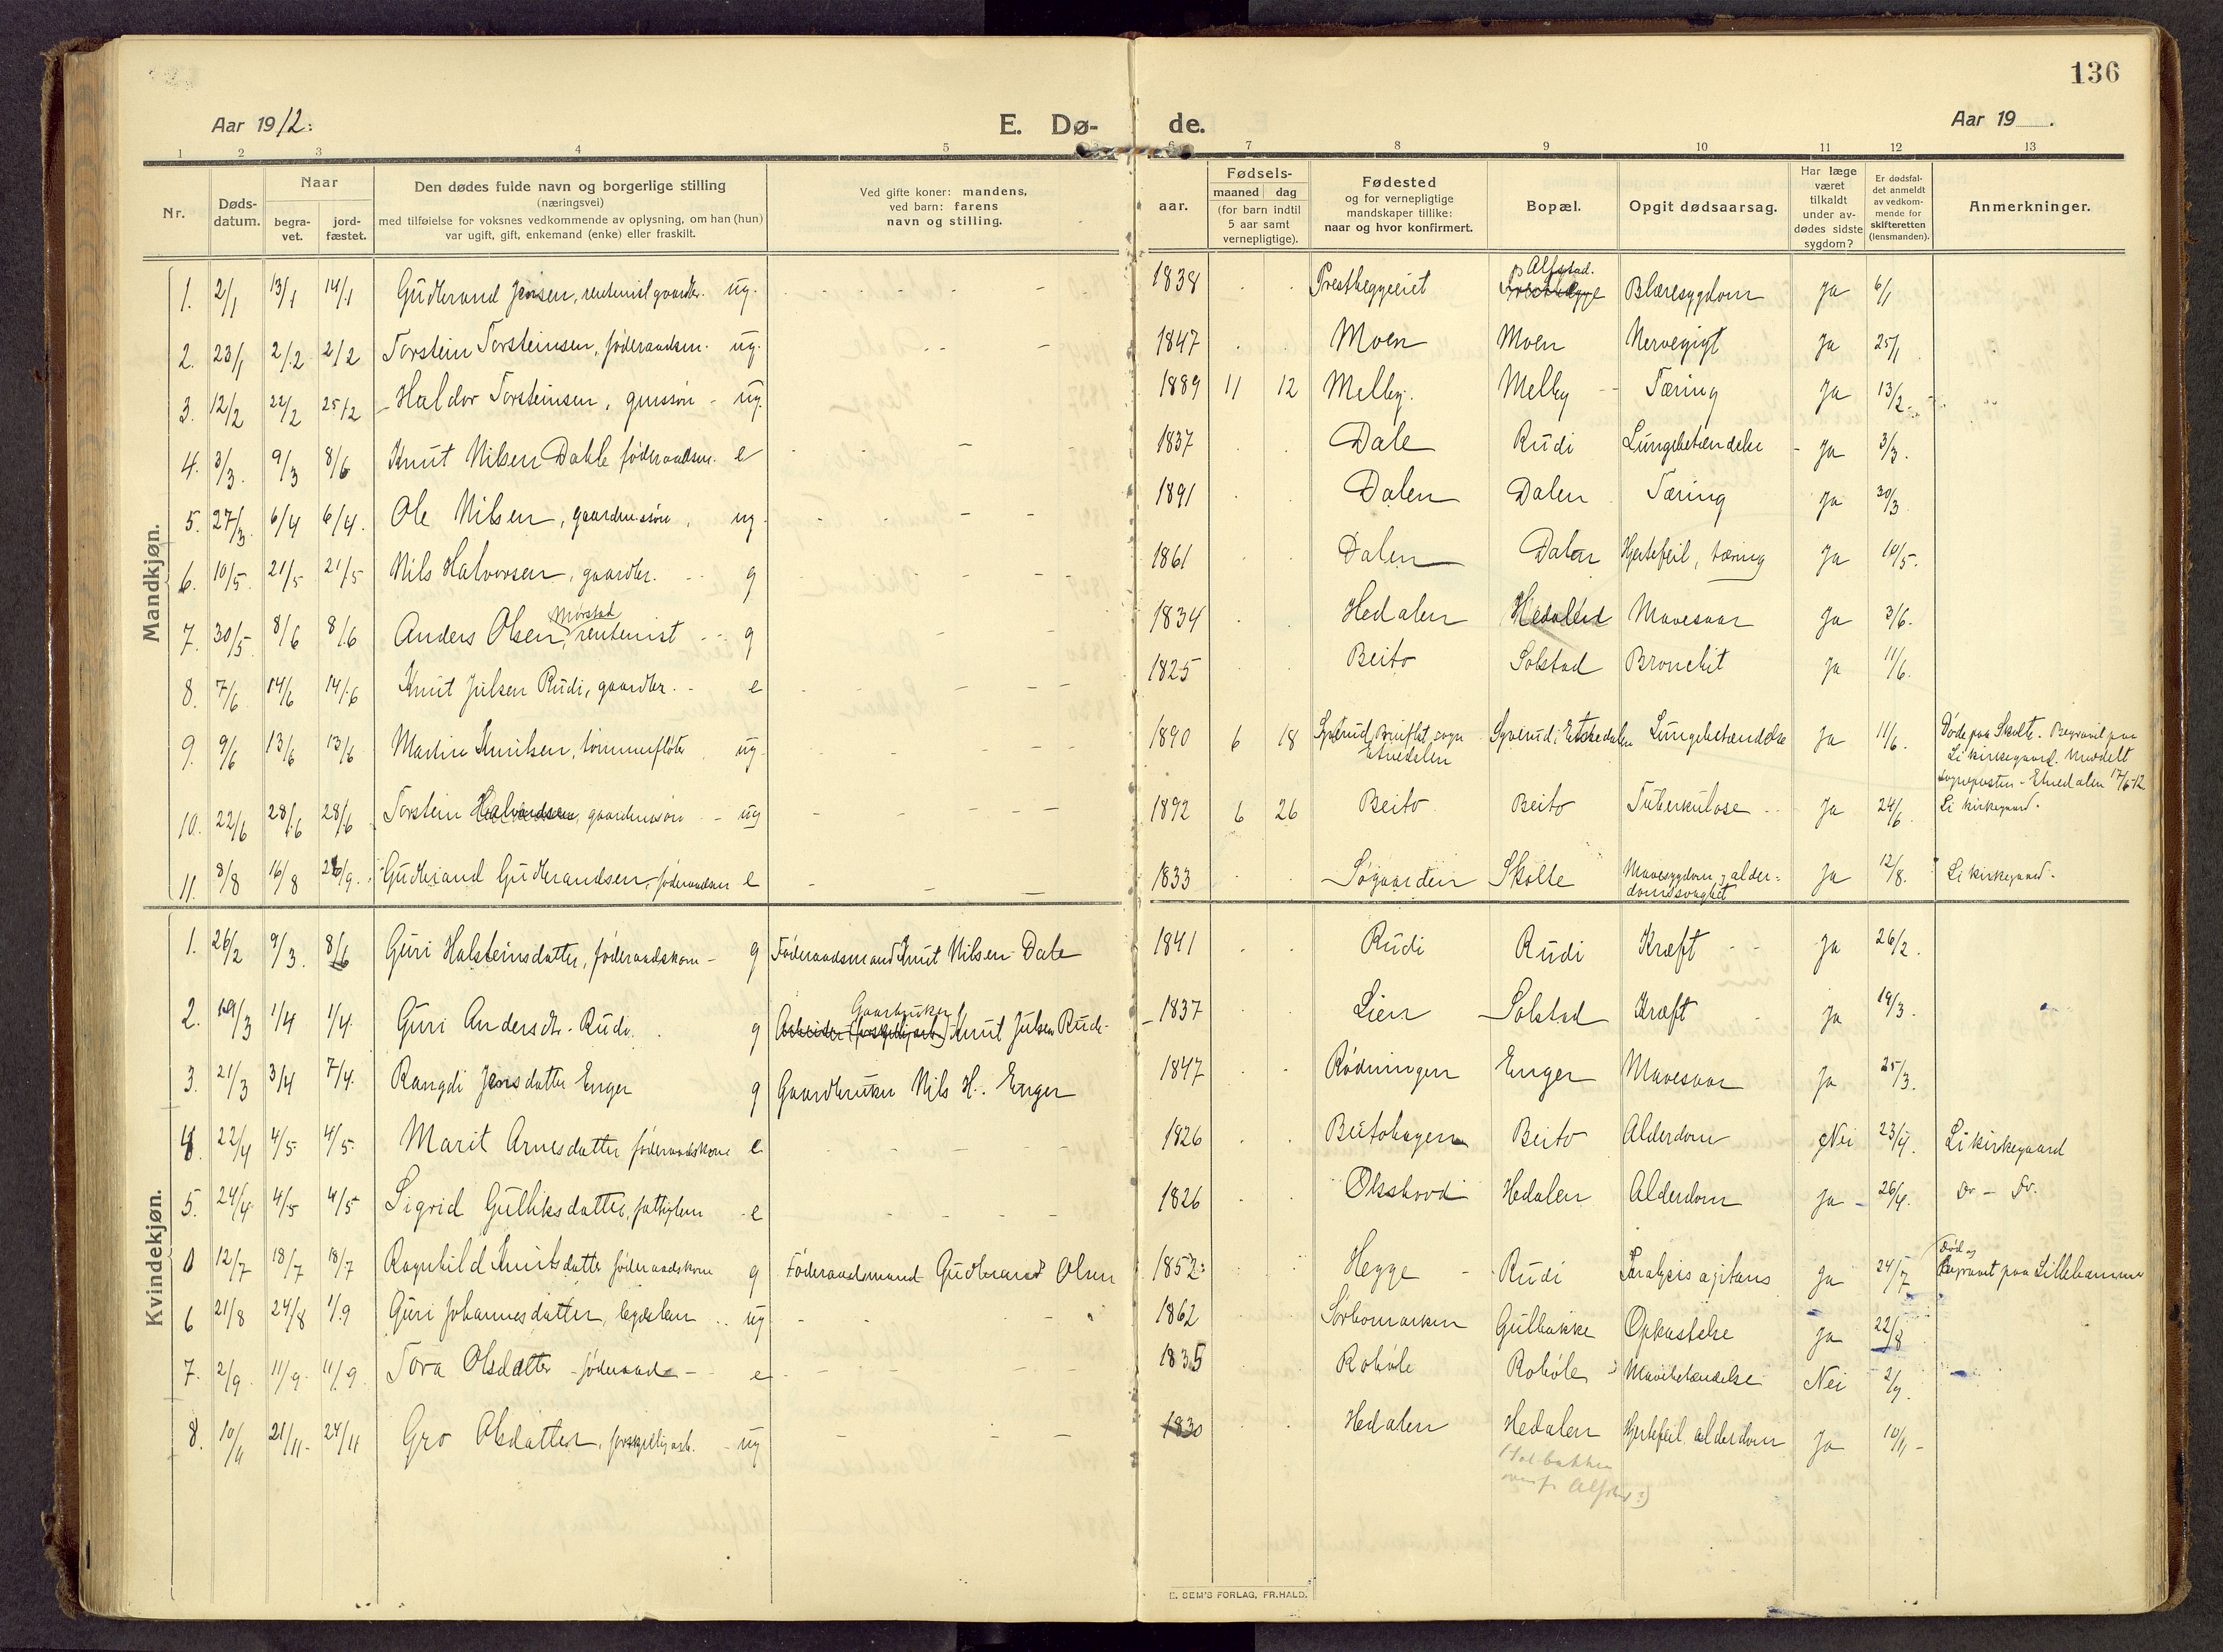 136
Aar 1912:
E. Dø-
de.
Aar 19 .
1 2 3 4 5 7 8 9 10 11 12 13
Nr.
Døds-
datum.
Naar
begra-
vet.
jord-
fæstet.
Den dødes fulde navn og borgerlige stilling
(næringsvei)
med tilføielse for voksnes vedkommende av oplysning, om han (hun)
var ugift, gift, enkemand (enke) eller fraskilt.
Ved gifte koner: mandens,
ved barn: farens
navn og stilling.
aar.
Fødsels-
maaned dag
(for barn indtil
5 aar samt
vernepligtige).
Fødested
og for vernepligtige
mandskaper tillike:
naar og hvor konfirmert.
Bopæl.
Opgit dødsaarsag.
Har læge
været
tilkaldt
under av-
dødes sidste
sygdom?
Er dødsfal-
det anmeldt
av vedkom-
mende for
skifteretten
(lensmanden).
Anmerkninger.
Mandkjøn.
Alfstad.
1. 2/1 13/1 14/1 Gudbrand Jensen, ug. 1838 Blæresygdom Ja 6/1
2. 23/1 2/2 2/2 Torstein Torsteinsen, føderaadsm. ug. 1847 Moen Moen Nervegigt Ja 25/1
3. 12/2 22/2 25/2 Haldor Torsteinsen, ug. 1889 11 12 Melby. Melby Tæring Ja 13/2
4. 3/3. 9/3 8/6 Knut Nilsen Dahle føderaadsm. e 1837 Dale Rudi Lungebetændelse Ja 3/3.
5. 27/3 6/4 6/4. Ole Nilsen, ug. 1891 Dalen Dalen Tæring Ja 30/3
6. 10/5 21/5 21/5 Nils Halvorsen, gaardbr. g 1861 Dalen Dalen Hjertefeil, tæring Ja 10/5.
Mørstad
7. 30/5 8/6 8/6 Anders Olsen, rentenist g 1834 Hedalen Hedalen Mavesaar Ja 3/6.
8. 7/6 14/6 14/6 Knut Julsen Rudi, gaardbr. e 1825 Beito Solstad Bronchit Ja 11/6.
9. 9/6 13/6 13/6 Martin Knutsen, tømmerfløter ug 1890 6 18 Lungebetændelse Ja 11/6. Døde paa Skolte. Begravet paa
Etnedalen Li kirkegaard. Meddelt
sogneprsten - Etnedalen 17/6-12
10. 22/6 28/6 28/6 Torstein ug 1892 6 26 Beito Beito Tuberkulose Ja 24/6 Li kirkegaard.
11. 8/8 16/8 Gudbrand Gudbrandsen, føderaadsm e 1833 Søgaarden Skolte Mavesygdom, alder-
domssvaghet Ja 12/8. Li kirkegaard.
Kvindekjøn.
1. 26/2 9/3. 8/6 Guri Halsteinsdatter, føderaadskone g Føderaadsmand Knut Nilsen Dale 1841 Rudi Rudi Kræft Ja 26/2.
Gaardbruker
2. 19/3 1/4 1/4. Guri Andersdtr. Rudi. g Knut Julsen Rudi 1837 Lien Solstad Kræft Ja 19/3.
3. 21/3 3/4 7/4. Rangdi Jensdatter Enger g Gaardbruker Nils H. Enger 1847 Rødningen Enger Mavesaar Ja 25/3.
4. 22/4 4/5 4/5. Marit Arnesdatter føderaadskone e 1826 Beitohagen Beito Alderdom Nei 23/4. Li kirkegaard
5. 24/4 4/5 4/5 Sigrid Gulliksdatter, e 1826 Okshovd Hedalen Alderdom Ja 26/4. Do - Do.
12/7 18/7 18/7 Ragnhild Knutsdatter føderaadskone g Føderaadsmand Gudbrand Olsen 1852: Hegge Rudi Paralysis agitans Ja 24/7 Død og
begravet paa Lillehammer
6 21/8 24/8 1/9 Guri Johannesdatter, ug 1862 Gulbakke Opkastelse Ja 22/8
7. 2/9. 11/9. 11/9 Tora Olsdatter føderaad e 1835 Robøle Robøle Mavebetændelse Nei 2/9.
8. 10/11 21/11. 24/11 Gro Olsdatter, ug 1830 Hedalen Hedalen Hjertefeil alderdom Ja 10/11
E. SEM'S FORLAG, FR.HALD.